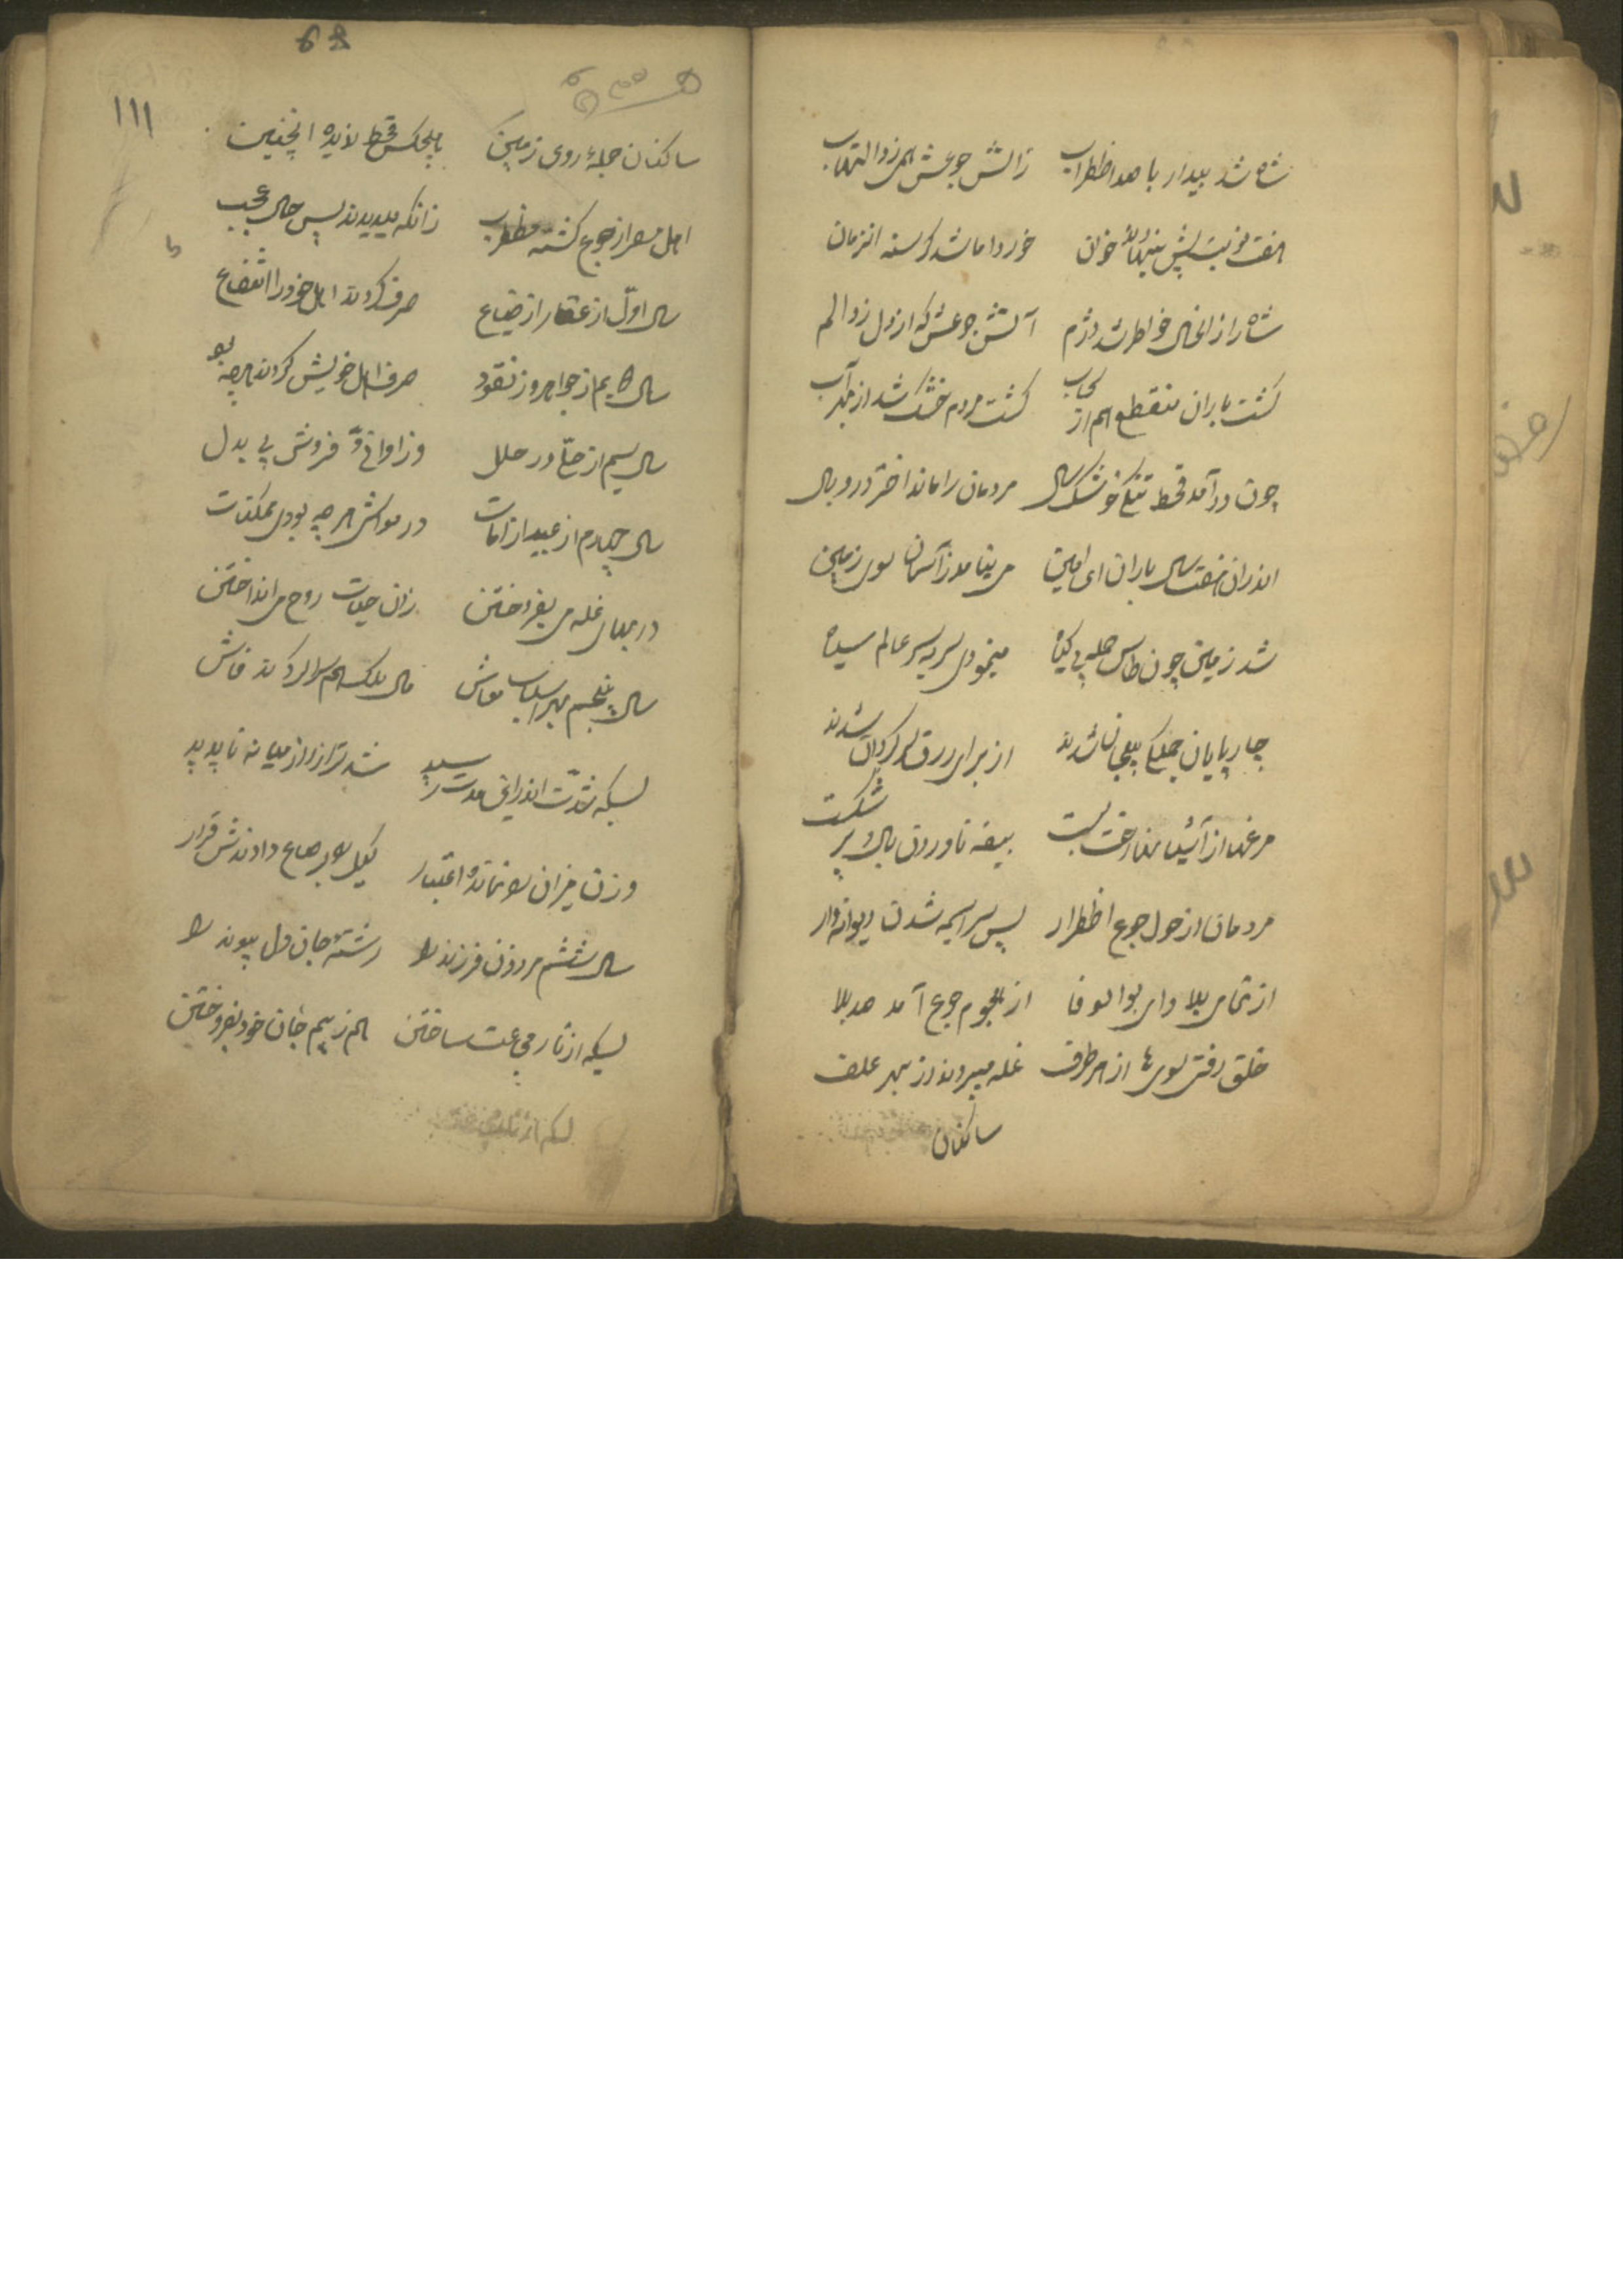 شاه شد بیدار با صد اظطراب زاتش جوعش همی زد التهاب
هفت نوبت پیش بنهاد خوان خورد اما شد کرسنه انزمان
شاه را زانحال خاطر شد دژم آتش جوعش که از دل زد الم
کشت باران منقطع هم از سحاب کشت مردم خشک شد از جهد آب
چون در آمد قحط تنکی خشک سال مردمان را ماند اختر در وبال
اندران هفت سال باران ای امین می نیامد ز آسمان سوی زمین
شد زمین چون طاس جمله بی کیاه مینمودی سر بسر عالم سیاه
چارپایان جملکی بیجان شدند از برای رزق سرکردان شدند
مرغها از آشیانها رخت بست بیضه ناوردی بال و پر شکست
مردمان از حول جوع اظطرار پس سراسیمه شدن دیوانه وار
از تمامی بلا وای بوالوفا از هجوم جوع آمد صد بلا
خلق رفتی سوی از هر طرف غله میبردند از بهر علف
ساکنان
68
111
ساکنان جملهٔ روی زمین هیچکس قحط ندیده انچنین
اهل مصر از جوع کشته مظطرب زانکه میدیدند پس حالی عجب
سال اول از عقار از ضیاع صرف کردند اهل خود را انتفاع
سال دیم از جواهر وز نقود صرف اهل خویش کردند هرچه بود
سال سیم از حلی و در حلل وز اوانی و فروش بی بدل
سال چهارم از عبید از امات در مواشی هر چه بودی ممکنات
در بهای غله می بفروختن زان حیات روح می انداختن
سال پنجم بهر اسباب معاش مال ملک هم را کردند فاش
بسکه شدّت اندر این مدت رسید شد ترازو از میانه ناپدید
وزن میزان را نمانده اعتبار کیل را بر صاع دادندش قرار
سال ششم مرد و زن فرزند را رشتهٔ جان دل پیوند را
بسکه از نار مجاعت ساختن هم ز بیم جان خود بفروختن